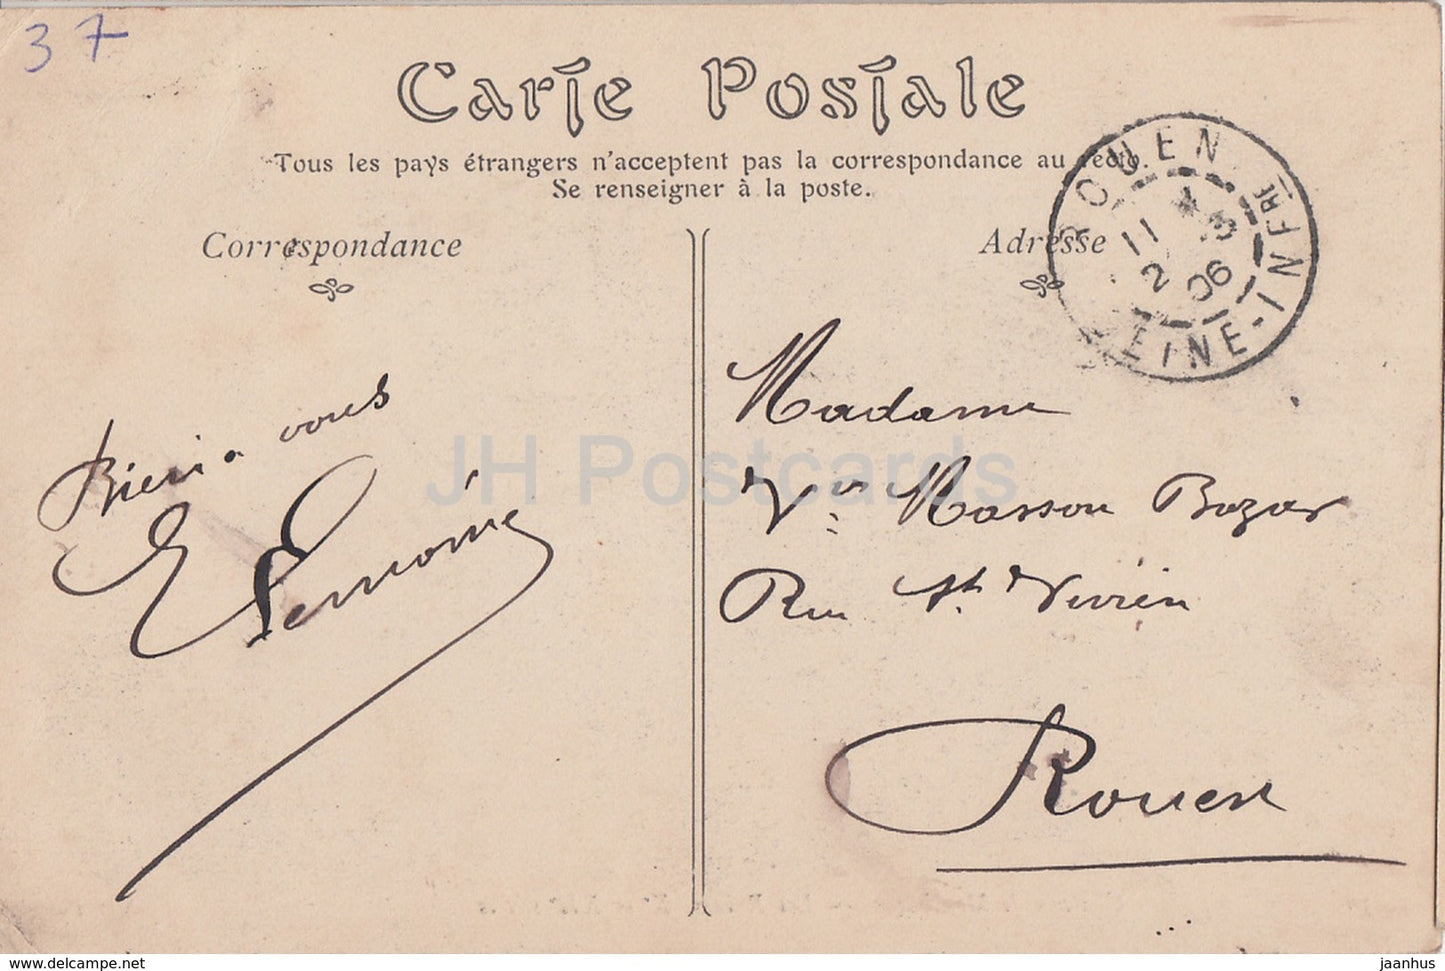 37
Carte Postale
Tous les pays étrangers n'acceptent pas la correspondance au recto.
Se renseigner à la poste.
Correspondance
Adresse
ROUEN
11 * 3
2 06
SEINE-INFRE
Bien à vous
E Lemoine
Madame
Vve Masson Bozar
Rue St Vivien
Rouen
JH Postcards
www.delcampe.net
jaanhus